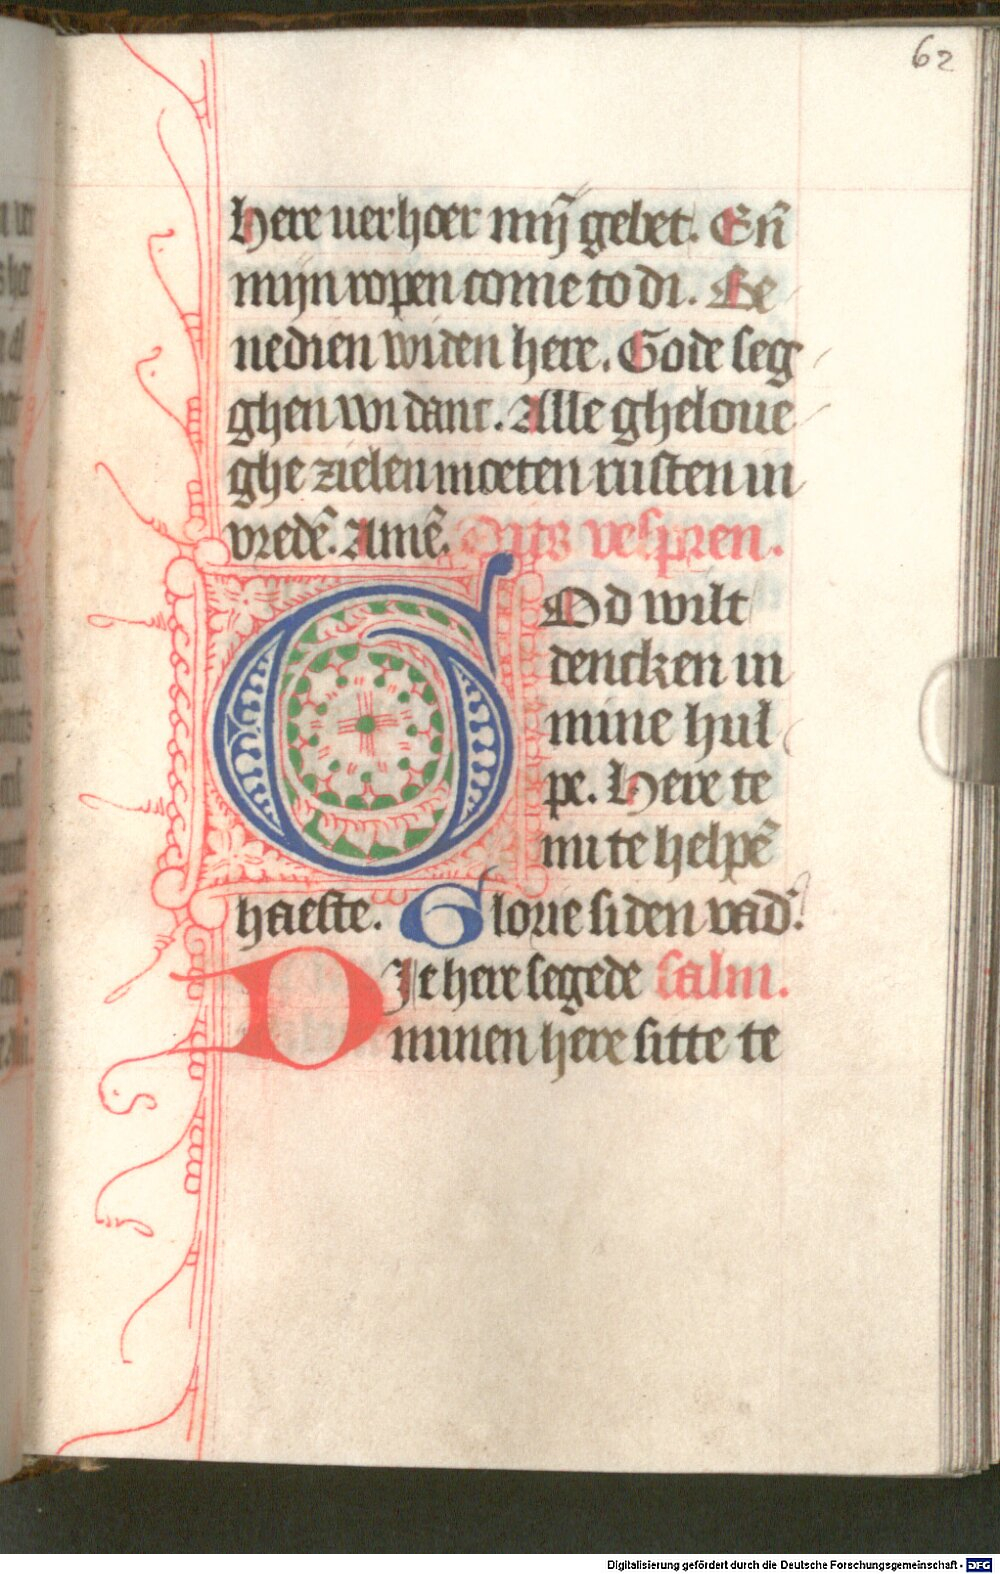 62
Here uerhoer mÿ gebet. En̄
mijn ropen come to di. Be
nedien wi den here. Gode seg
ghen wi danc. Alle gheloue
ghe zielen moeten rusten in
vredē. Amē. Dits vespren.
GOd wilt
dencken in
mine hul
pe. Here te
mi te helpē
haeste. Glorie si den vad̓.
DIe here segede salm.
minen here sitte te
Digitalisierung gefördert durch die Deutsche Forschungsgemeinschaft - DFG